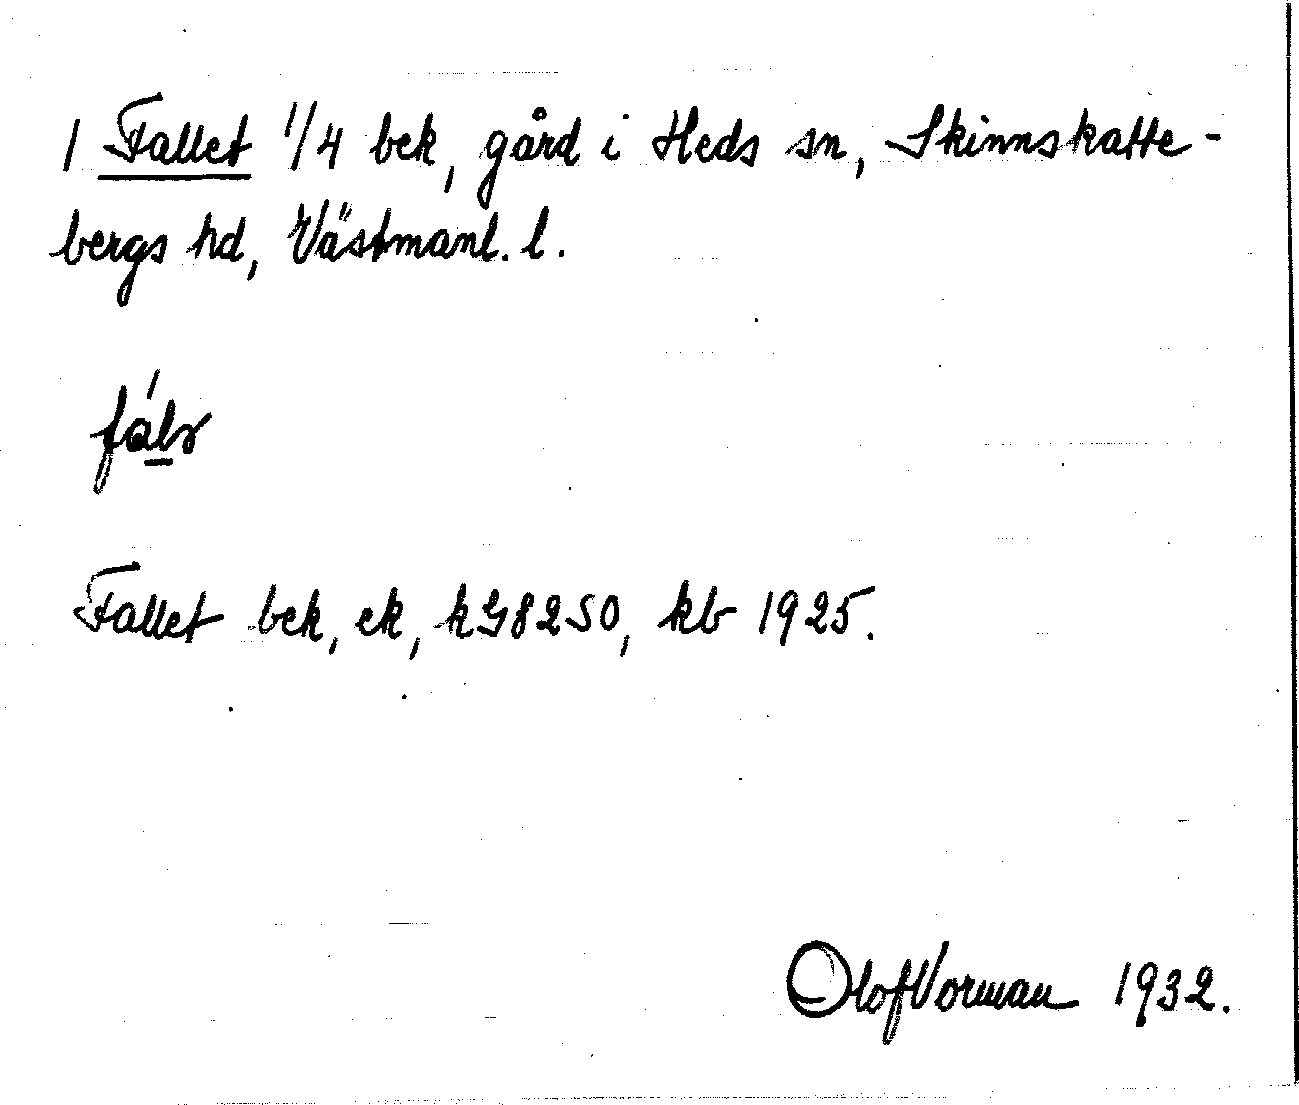 1 Fallet 1/4 bek, gård i Heds sn, Skinnskatte-
bergs hd, Västmanl. l.
Fallet bek, ek, kG8250, kb 1925.
Olof Vorman 1932.